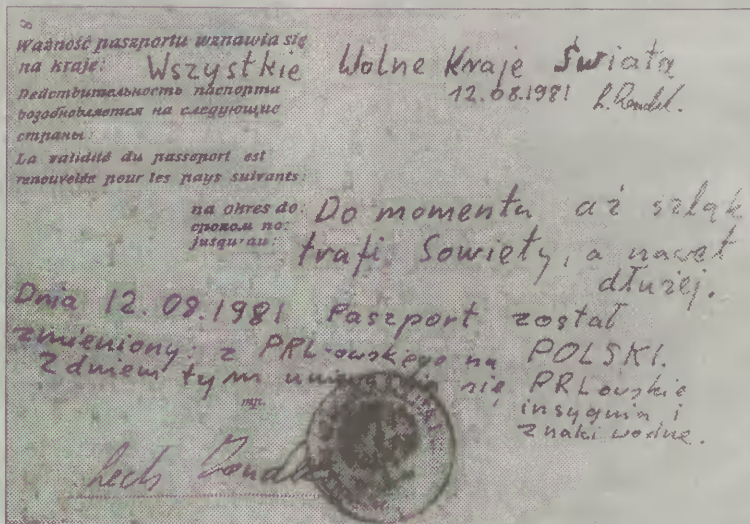 8
Ważność paszportu wznawia się
na kraje: Wszystkie Wolne Kraje Świata
12.08.1981
Действительность паспорта
возобновляется на следующие
страны:
La validité du passeport est
renouvelée pour les pays suivants:
na okres do: Do momentu aż szlak
сроком по: trafi Sowiety, a nawet
jusqu'au: dłużej.
Dnia 12.08.1981 Paszport został
zmieniony: z PRL-owskiego na POLSKI.
Z dniem tym się PRLowskie
insygnia i
mp. znaki wodne.
Lech